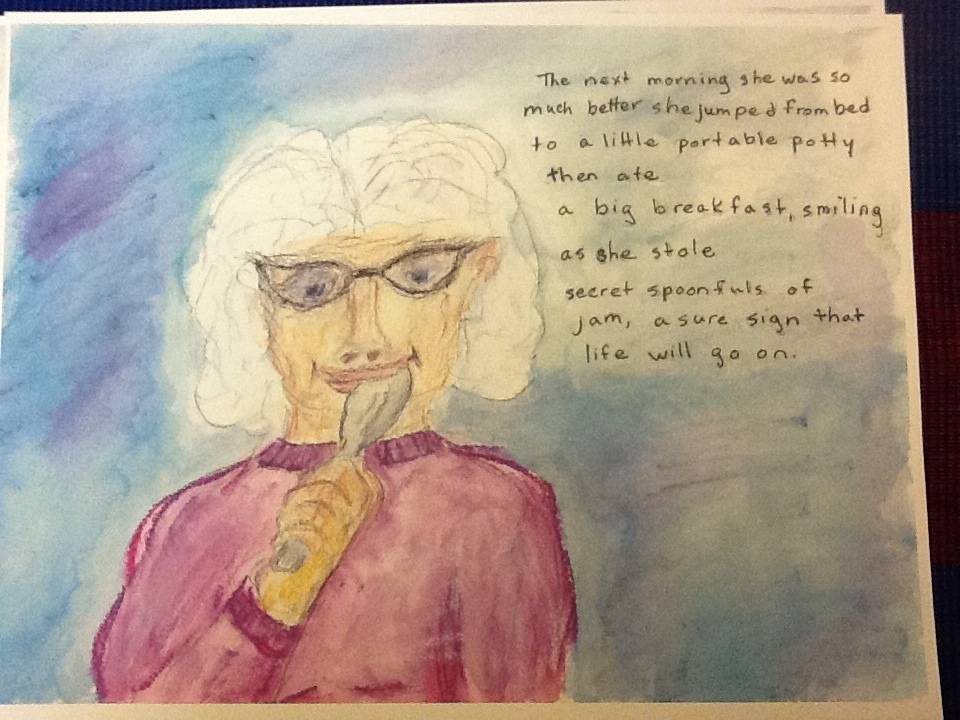 The next morning she was so
much better she jumped from bed
to a little portable potty
then ate
a big breakfast, smiling
as she stole
secret spoonfuls of
jam, a sure sign that
life will go on.